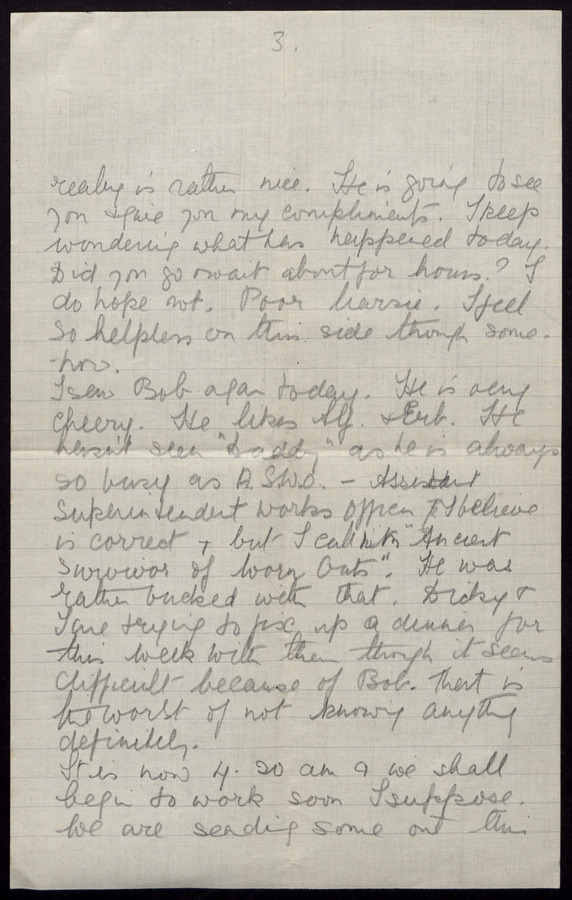 3.
really is rather nice. He is going to see
you & give you my compliments. I keep
wondering what has happened today.
Did you go & wait about for hours? I
do hope not. Poor  I feel
so helpless on this side though some-
-how.
I saw Bob again today. He is very
cheery. He likes Alf. & Erb. He
hasn't seen "Daddy" as he is always
so busy as A.S.W.O. – Assistant
Superintendent Works Officer I believe
is correct + but I call him "Ancient
Survivor of Worn Outs". He was
rather bucked with that. Dicky &
I are trying to fix up a dinner for
this week with them though it seems
difficult because of Bob. That is
the worst of not knowing anything
definitely.
It is now 4.20 am & we shall
begin to work soon I suppose.
We are sending some out this